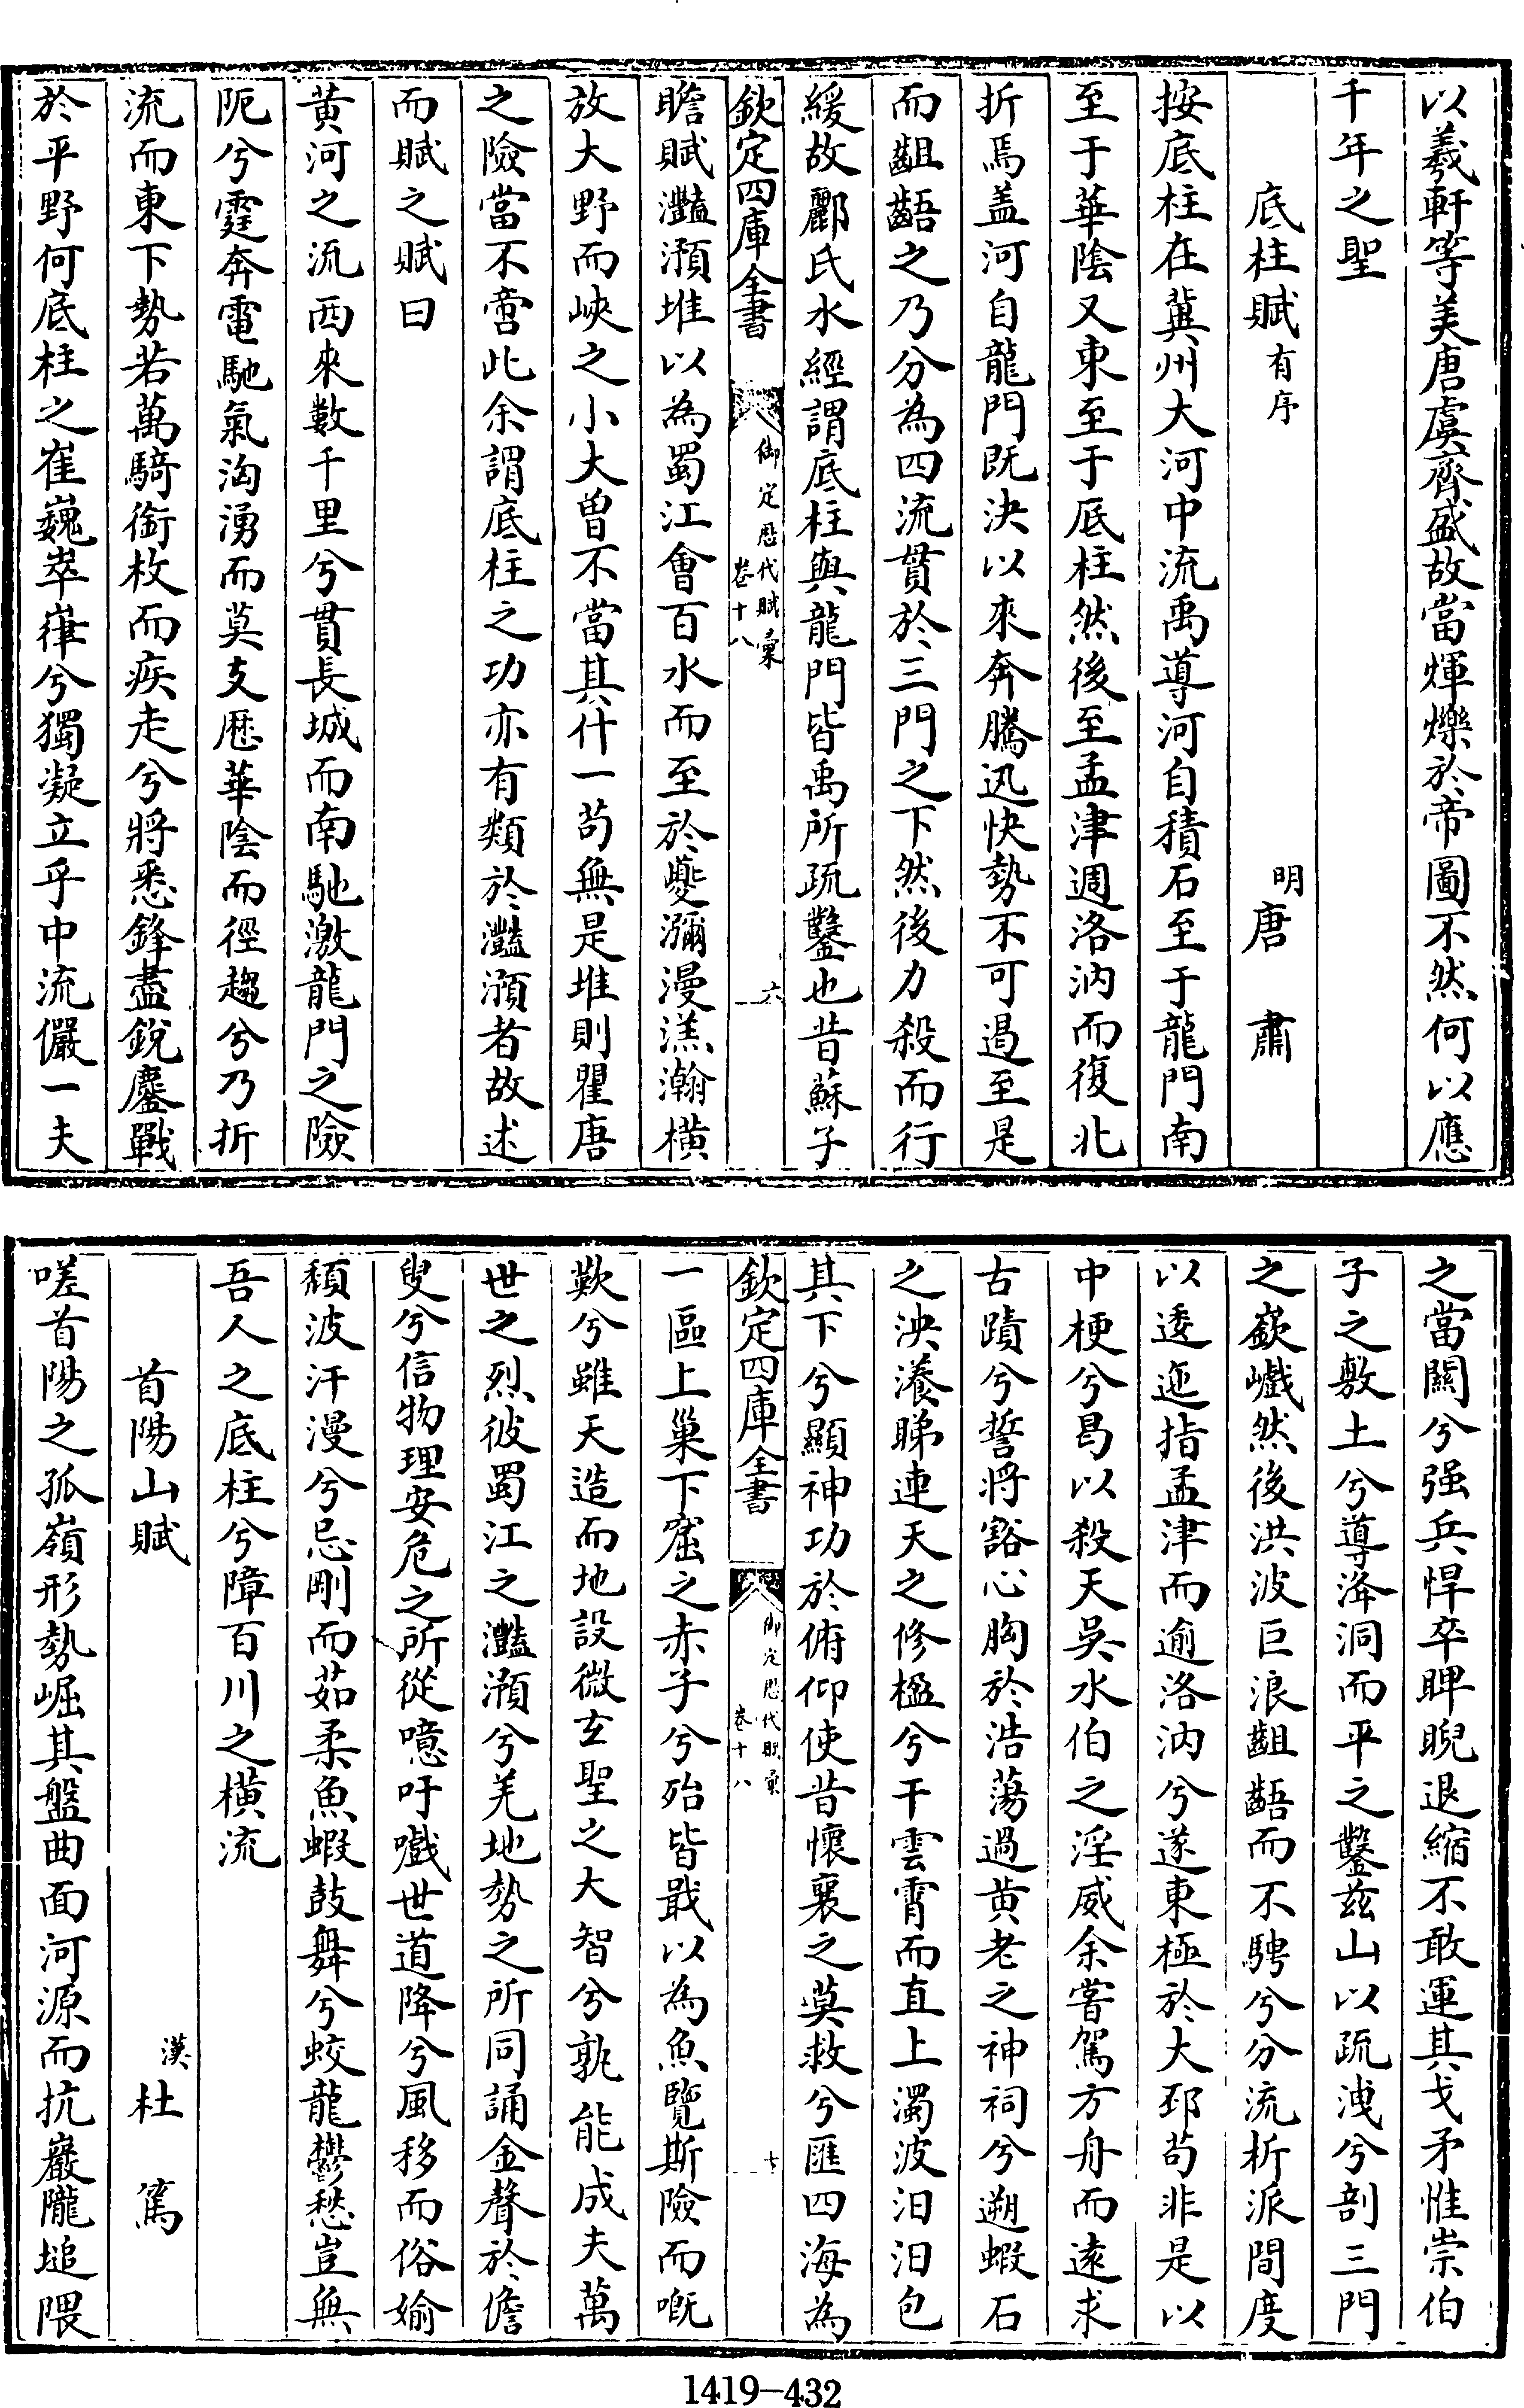 以羲軒等美唐虞齊盛故當煇爍於帝圖不然何以應
千年之聖
底柱賦有序 明唐肅
按底柱在冀州大河中流禹導河自積石至于龍門南
至于華陰又東至于底柱然後至孟津過洛汭而復北
折焉盖河自龍門既決以來奔騰迅快勢不可遏至是
而齟齬之乃分為四流貫於三門之下然後力殺而行
緩故酈氏水經謂底柱與龍門皆禹所疏鑿也昔蘇子
欽定四庫全書 御定歷代賦彙 卷十八 六
瞻賦灩澦堆以為蜀江會百水而至於夔瀰漫漾瀚橫
放大野而峽之小大曽不當其什一苟無是堆則瞿唐
之險當不啻此余謂底柱之功亦有類於灩澦者故述
而賦之賦曰
黄河之流西來數千里兮貫長城而南馳激龍門之險
阨兮霆奔電馳氣洶湧而莫支歴華陰而徑趨兮乃折
流而東下勢若萬騎銜枚而疾走兮將悉鋒盡銳鏖戰
於平野何底柱之崔巍崒嵂兮獨凝立乎中流儼一夫
之當闗兮强兵悍卒睥睨退縮不敢運其戈矛惟崇伯
子之敷土兮導洚洞而平之鑿兹山以疏洩兮剖三門
之嶔巇然後洪波巨浪齟齬而不騁兮分流析派間度
以逶迤指孟津而逾洛汭兮遂東極於大邳苟非是以
中梗兮曷以殺天吳水伯之淫威余嘗駕方舟而遠求
古蹟兮誓將豁心胸於浩蕩過黄老之神祠兮遡蝦石
之泱瀁睇連天之修楹兮干雲霄而直上濁波汩汩包
其下兮顯神功於俯仰使昔懷襄之莫救兮匯四海為
欽定四庫全書 御定歷代賦彙 卷十八 七
一區上巢下窟之赤子兮殆皆戢以為魚覽斯險而嘅
歎兮雖天造而地設微玄聖之大智兮孰能成夫萬
世之烈彼蜀江之灩澦兮羌地勢之所同誦金聲於儋
叟兮信物理安危之所從噫吁戲世道降兮風移而俗媮
頽波汗漫兮忌剛而茹柔魚蝦鼓舞兮蛟龍鬱愁豈無
吾人之底柱兮障百川之橫流
首陽山賦 漢杜篤
嗟首陽之孤嶺形勢崛其盤曲面河源而抗巖隴塠隈
1419-432